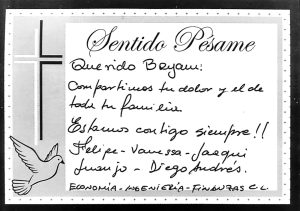 Sentido Pésame
Querido Bryam:
Compartimos tu dolor y el de
toda tu familia.
Estamos contigo siempre!!
Felipe - Vanessa - Joaqui
Juanjo - Diego Andrés.
ECONOMIA - INGENIERÍA - FINANZAS C.L.